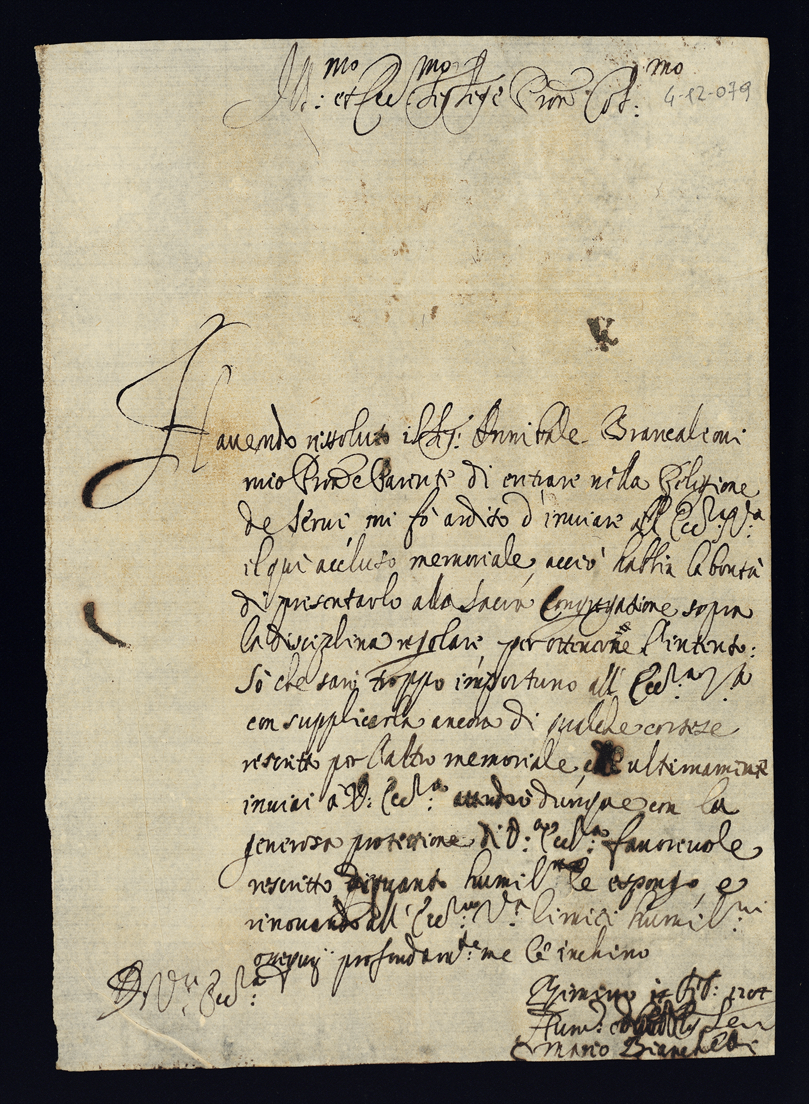 Ill:mo et Ecc:mo Sig:re Sig:re Pron Col:mo
4-12-079
Havendo rissoluto il Sig: Annibale Brancaleoni
mio Pron e Parente di entrare nella Religione
de Servi mi fò ardito d'inviare all Ecc:a V:a
il qui accluso memoriale, acciò habbia la bontà
di presentarlo alla Sacra Congregatione sopra
la disciplina regolare, per ottenerne l'intento:
Sò che sarò troppo importuno all' Ecc:a V:a
con supplicarla ancora di qualche cortese
rescritto per l'altro memoriale, che ultimamente
inviai à V: Ecc:a attendrò dunque con la
generosa protettione di V:a Ecc:a favorevole
rescritto di quanto humil:te le espongo, e
rinovando all' Ecc:a V:a li miei humil:mi
ossequij profondam:te me le inchino
D V:a Ecc:a
Rimino Feb: 1704
Hum: Ser
Mario Bianchelli